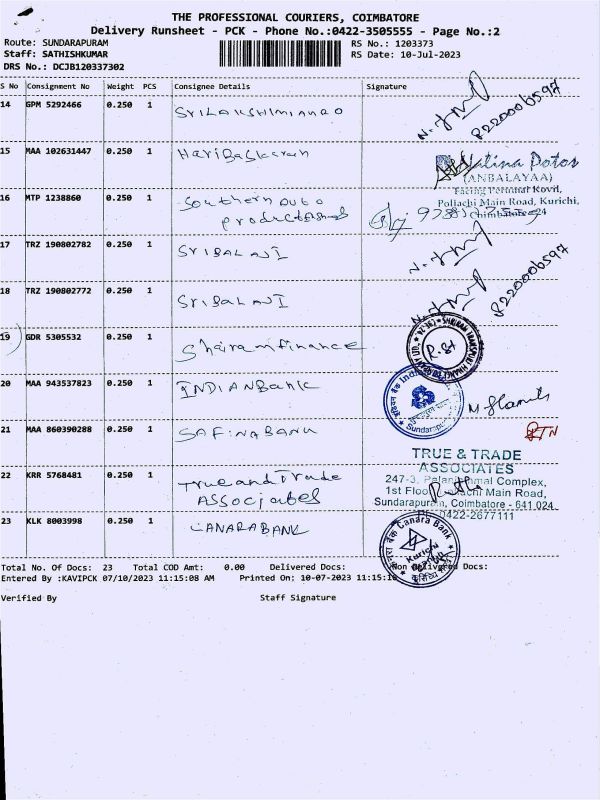 THE PROFESSIONAL COURIERS, COIMBATORE
Delivery Runsheet - PCK - Phone No.:0422-3505555 - Page No.:2
Route: SUNDARAPURAM
RS No.: 1203373
Staff: SATHISHKUMAR
RS Date: 10-Jul-2023
DRS No.: DCJB120337302
S No Consignment No Weight PCS Consignee Details Signature
14 GPM 5292466 0.250 1
8220006597
15 MAA 102631447 0.250 1 HariBaskaran
(ANBALAYAA)
Facing Perumal Kovil,
Pollachi Main Road, Kurichi,
Chimbatore - 24
16 MTP 1238860 0.250 1 Southern Auto
productions
17 TRZ 190802782 0.250 1 SRIBALAJI
18 TRZ 190802772 0.250 1 SRIBALAJI
8220006597
19 GDR 5305532 0.250 1 Shriramfinance
R.St
20 MAA 943537823 0.250 1 INDIANBank
Sundarapuram
21 MAA 860390288 0.250 1 SAFINABANU
RTN
22 KRR 5768481 0.250 1 True and Trade
ASSociates
TRUE & TRADE
ASSOCIATES
247-3, Palaniammal Complex,
1st Floor, Pollachi Main Road,
Sundarapuram, Coimbatore - 641 024
Ph:0422-2677111
23 KLK 8003998 0.250 1 CANARABANK
केनरा बैंक Canara Bank
Kurichi
Total No. Of Docs: 23 Total COD Amt: 0.00 Delivered Docs: Non Delivered Docs:
Entered By :KAVIPCK 07/10/2023 11:15:08 AM Printed On: 10-07-2023 11:15:1
Verified By Staff Signature